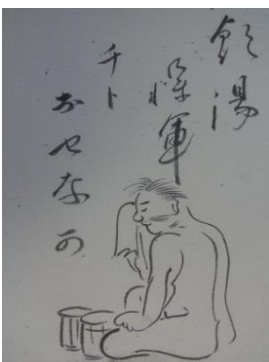 銭湯
将軍
チト
おせなか